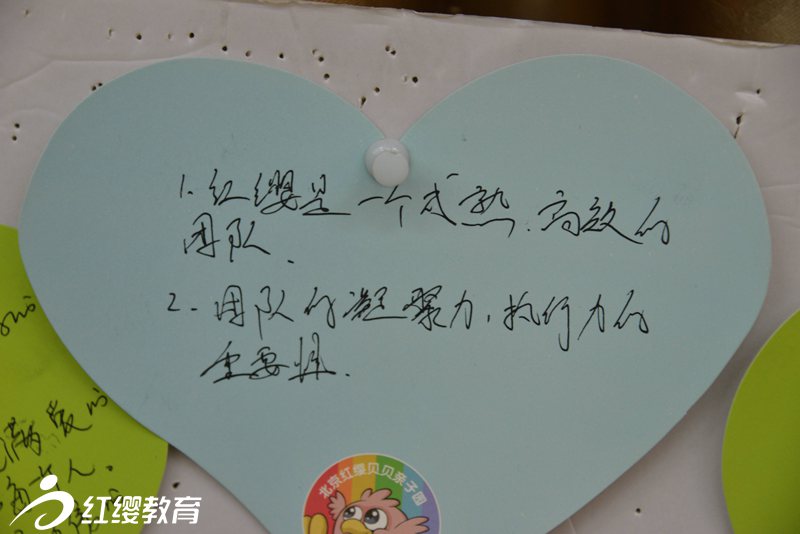 1.红缨是一个成熟、高效的
团队.
2.团队的凝聚力、执行力的
重要性.
北京红缨贝贝亲子园
满爱的
人.
红缨教育